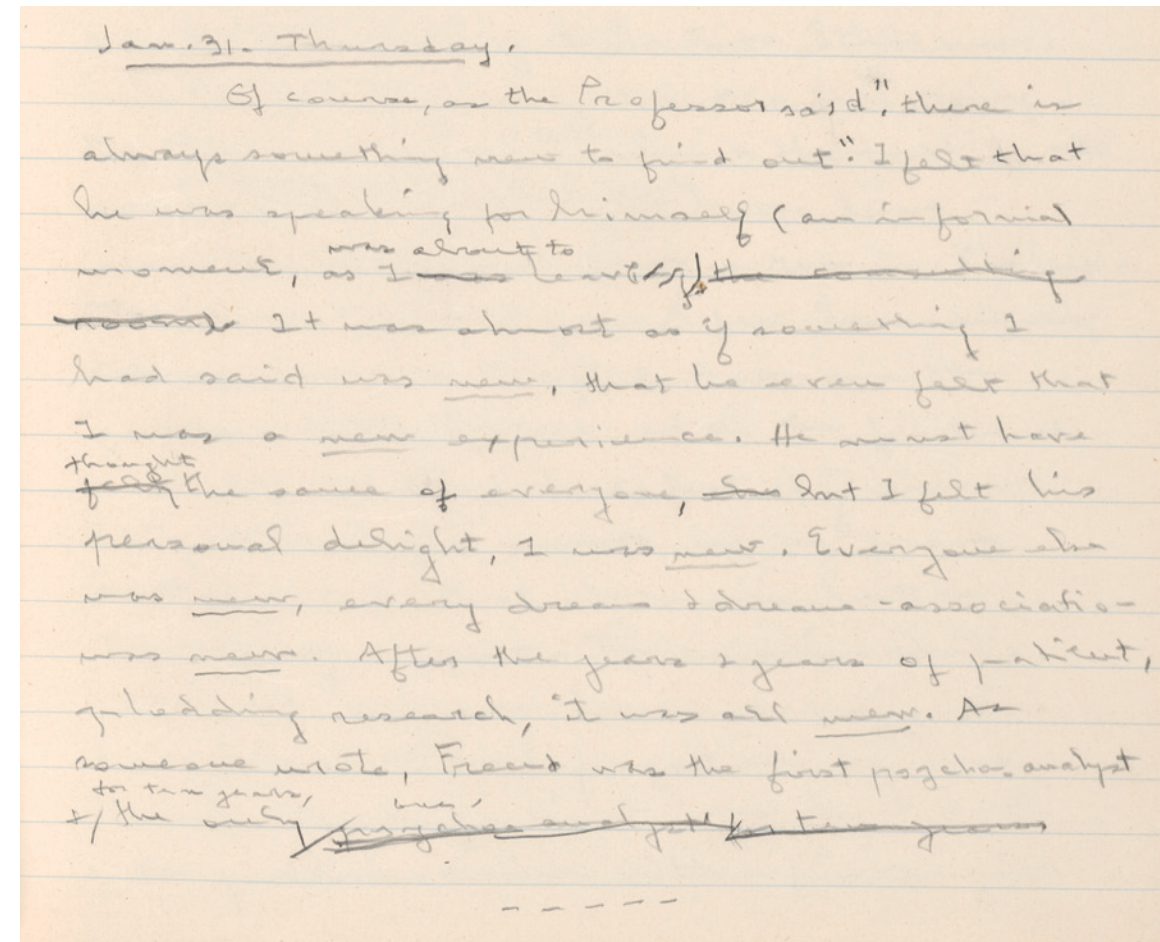 Jan. 31. Thursday.
Of course, as the Professor said, "there is
always something new to find out". I felt that
he was speaking for himself (an informal
was about to
moment, as I was leaving), the consulting
room). It was almost as if something I
had said was new, that he even felt that
I was a new experience. He must have
thought
felt the same of everyone, but I felt his
personal delight, I was new. Everyone else
was new, every dream & dream-associatio-
was new. After the years & years of patient,
plodding research, it was all new. As
someone wrote, Freud was the first psycho-analyst
for ten years, one,
+, the only psycho analyst" for ten years
- - - - -